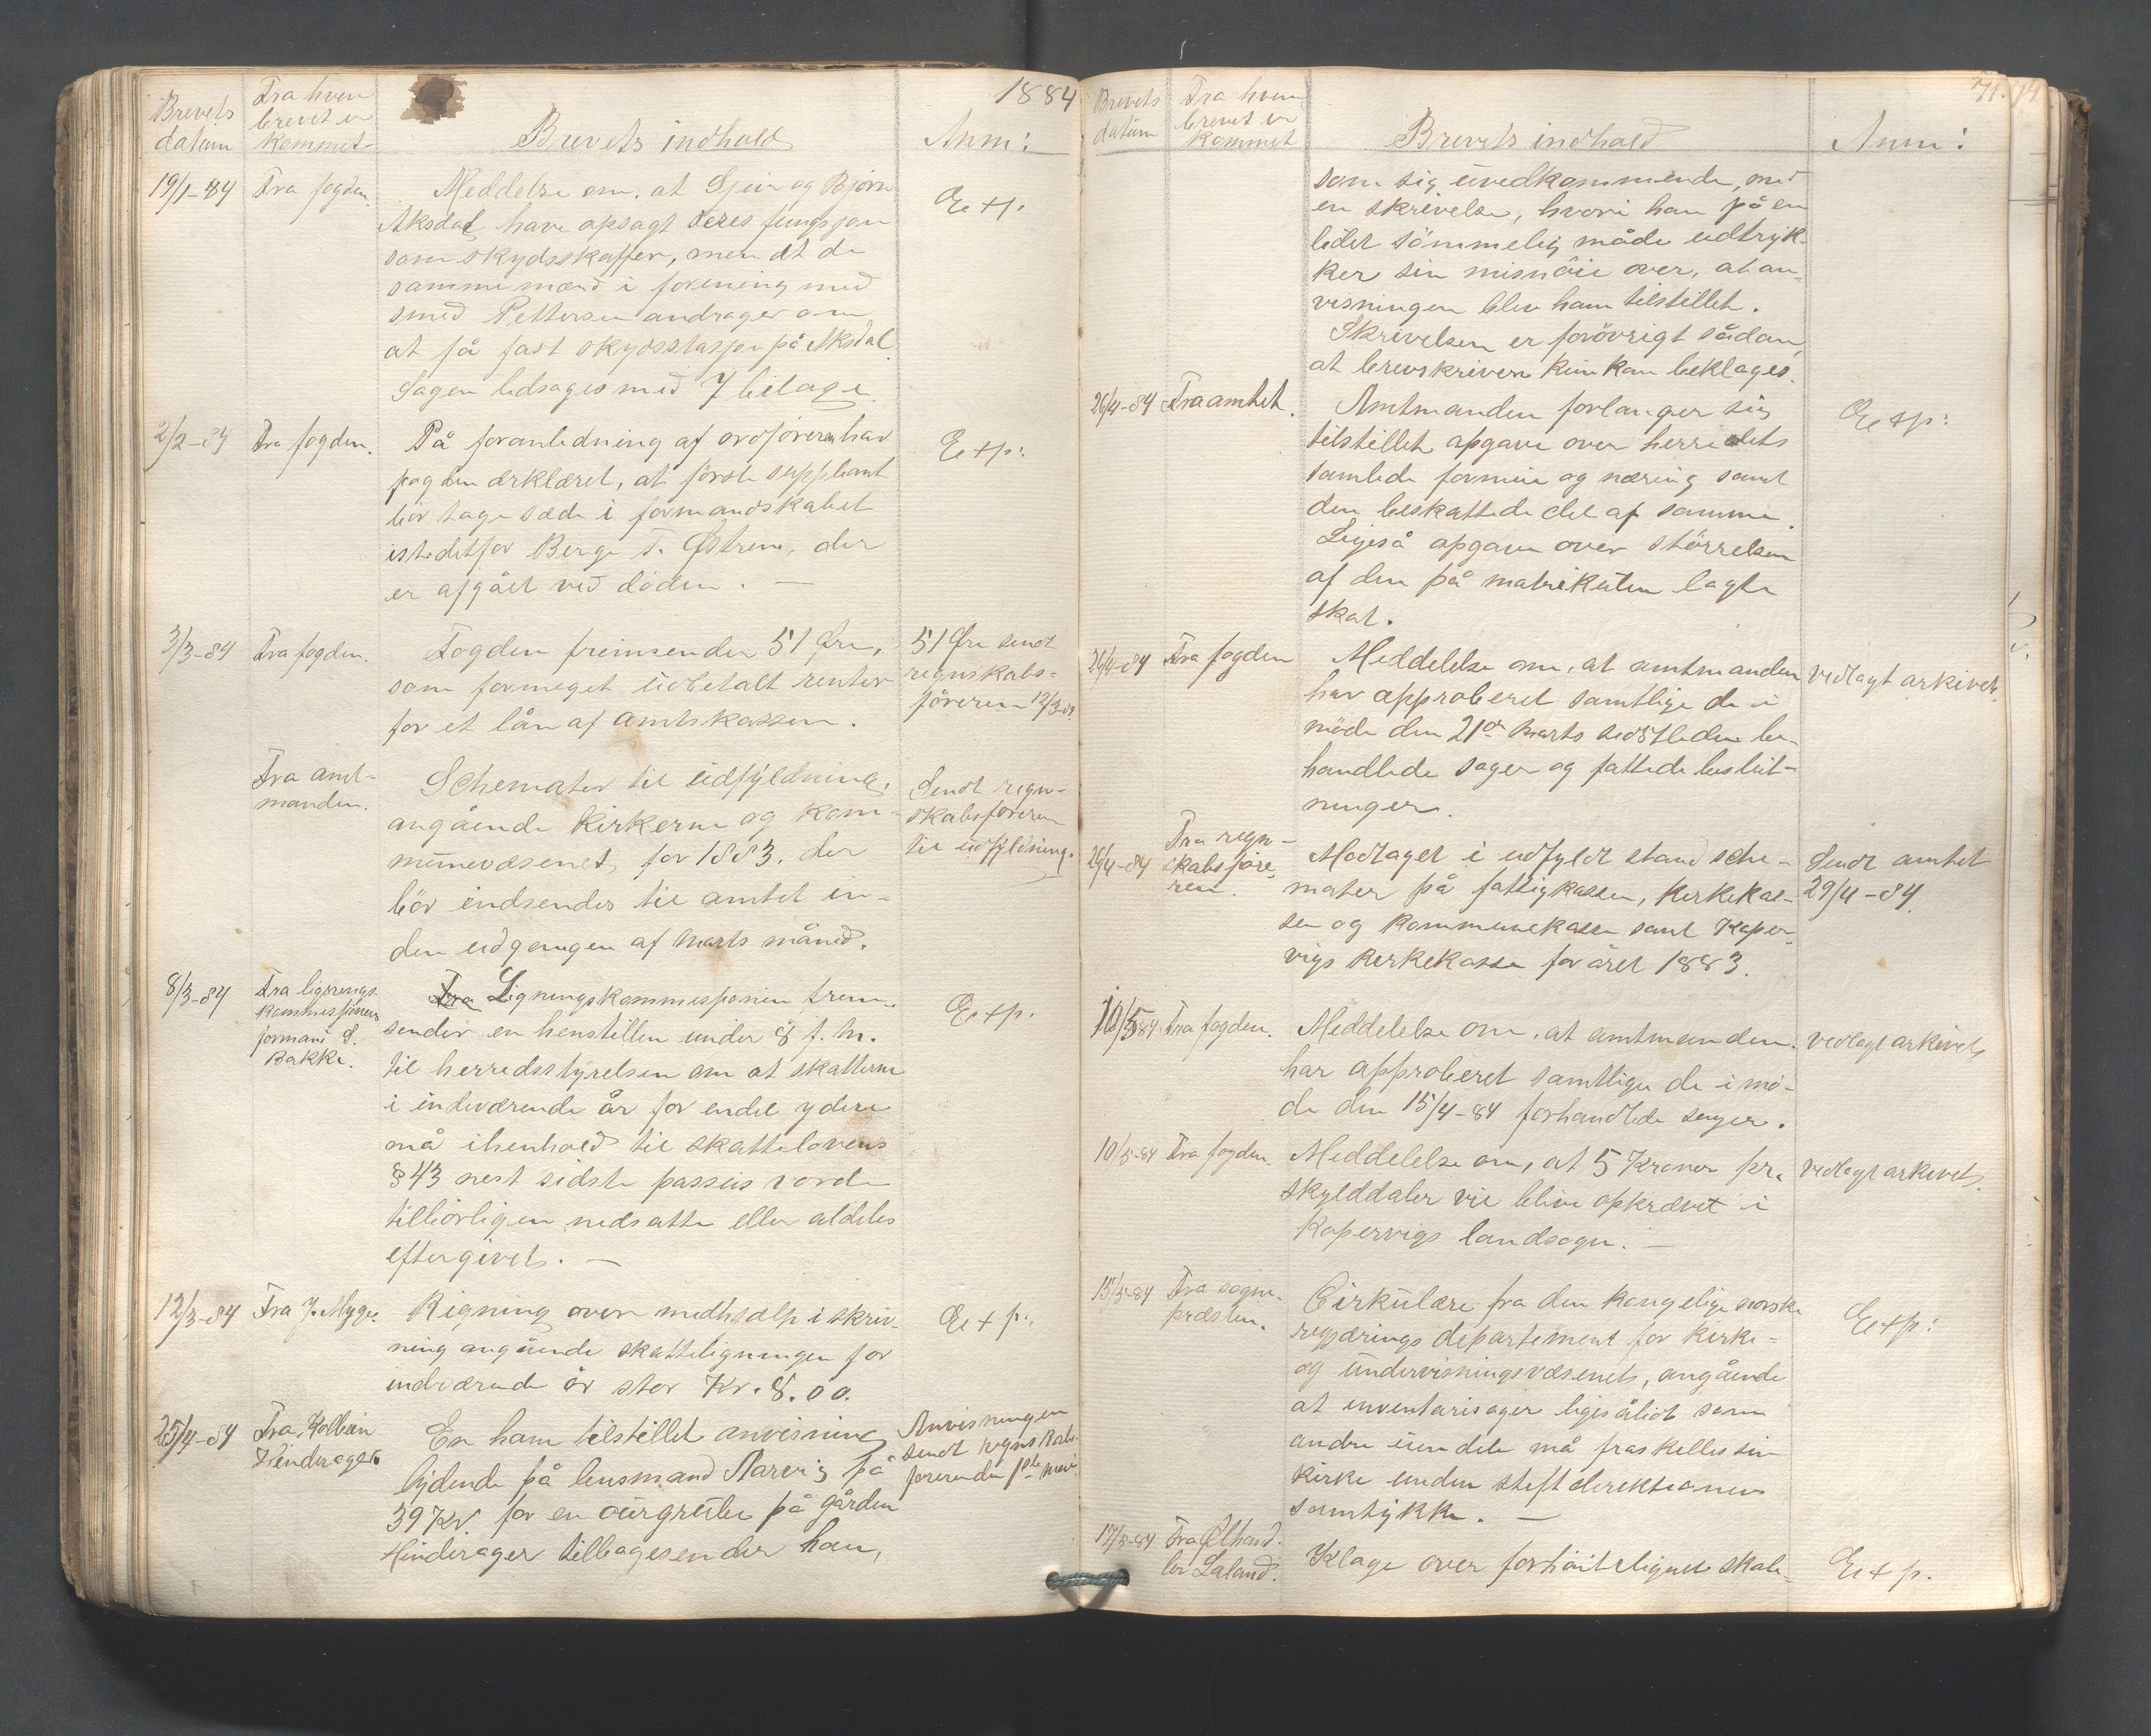 1884
Brevets datum
Fra hvem brevet er kommet
Brevets indhold
Anm:
19/1-84 Fra fogden.
Meddelse om, at Sjur og Bjørn
Aksdal have opsagt deres fungsjon
som skydsskaffer, men at de
samme mænd i forening med
smed Pettersen andrager om
at få fast skydsstasjon på Aksdal.
Sagen ledsages med 7 bilage.
Exp.
2/2-84 Fra fogden.
På foranledning af ordføreren har
fogden erklæret, at første suppleant
bör tage sæde i formandskabet
istedetfor Berge T. Østrem, der
er afgået ved döden. —
Exp:
3/3-84 Fra fogden.
Fogden fremsender 51 Øre,
som formeget udbetalt renter
for et lån af amtskassen.
51 Øre sendt
regnskabs-
föreren 12/3-84
Fra amt-
manden.
Schemater til udfyldning,
angående kirkerne og kom-
munevæsenet, for 1883, der
bör indsendes til amtet in-
den udgangen af marts måned.
Sendt regn-
skabsføreren
til udfyldning.
8/3-84 Fra lignings
kommisjonens
formand S.
Bakke.
Fra Ligningskommisjonen frem-
sender en henstillen under 8 f. m.
til herredsstyrelsen om at skatterne
i indeværende år for endel ydere
må ihenhold til skattelovens
§ 43 nest sidste passus vorde
tilbörligen nedsatte eller aldeles
eftergivet. —
Exp.
12/3-84 Fra J. Myge.
Rigning over medhjælp i skriv-
ning angående skatteligningen for
indværende år stor Kr. 8.00.
Exp:
25/4-84 Fra Kolbein
Hinderager.
En ham tilstillet anvisning
lydende på lensmand Aarvig på
39 Kr. for en ourgrube på gården
Hinderager tilbagesender han,
Anvisningen
sendt regnskabs-
føreren den 1ste mai
71. 74
Brevets datum
Fra hvem brevet er kommet
Brevets indhold
Anm:
som sig uvedkommende, med
en skrivelse, hvori han på en
lidet sömmelig måde udtryk-
ker sin misnöie over, at an-
visningen blev ham tilstillet.
Skrivelsen er forövrigt sådan,
at brevskriveren kun kan beklages.
26/4-84 Fra amtet.
Amtmanden forlanger sig
tilstillet opgave over herredets
samlede formue og næring samt
den beskattede del af samme.
Ligeså opgave over störrelsen
af den på matrikulen lagte
skat.
Exp:
26/4-84 Fra fogden
Meddelelse om, at amtmanden
har approberet samtlige de i
möde den 21de marts sidstleden be-
handlede sager og fattede beslut-
ninger.
vedlagt arkivet.
26/4-84 Fra regn-
skabsföre-
ren.
Modtaget i udfyldt stand sche-
mater på fattigkassen, kirkekas-
sen og kommunekassen samt Koper-
vigs kirkekasse for året 1883.
Sendt amtet
29/4-84.
10/5-84 Fra fogden.
Meddelelse om, at amtmanden
har approberet samtlige de i mö-
de den 15/4-84 forhandlede sager.
vedlagt arkivet,
10/5-84 Fra fogden.
Meddelelse om, at 5 Kroner pr.
skylddaler vil blive opkrævet i
Kopervigs landsogn. —
Vedlagt arkivet.
15/5-84 Fra sogne-
præsten.
Cirkulære fra den kongelige norske
regjerings departement for kirke-
og undervisningsvæsenet, angående
at inventarisager ligesålidt som
andre eiendele må fraskilles sin
kirke uden stiftdirektionens
samtykke. —
Exp:
17/5-84 Fra Ølhand-
ler Laland.
Klage over forhöit ligned skat-
Exp.